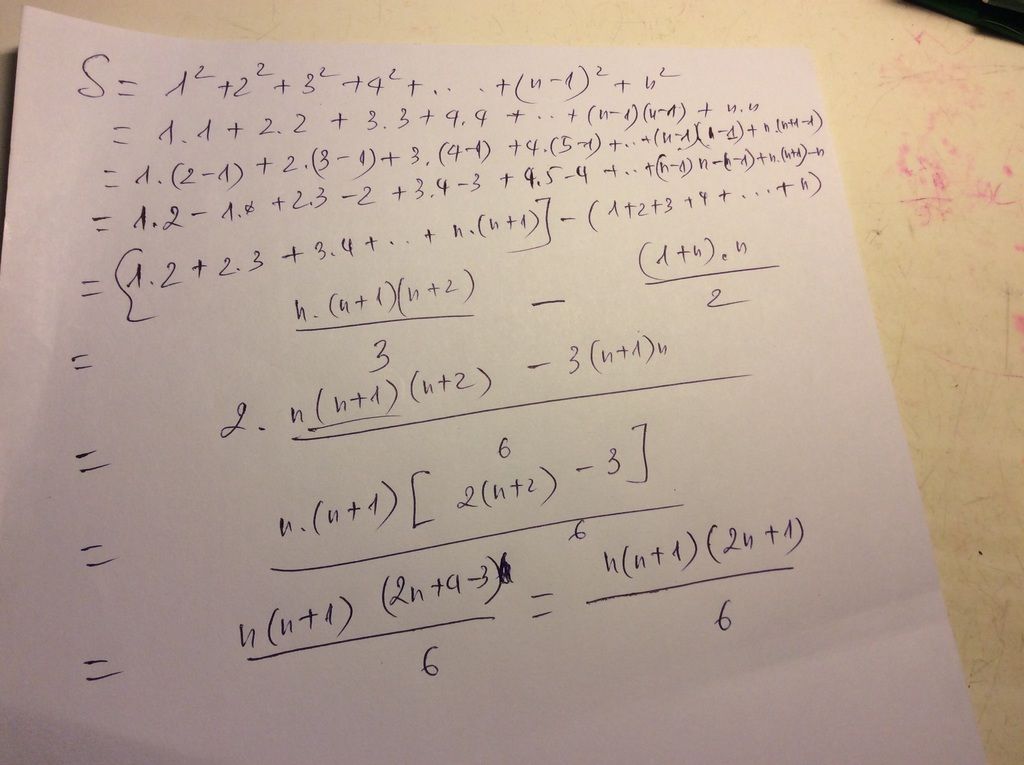 S = 1² + 2² + 3² + 4² + . . . + (n-1)² + n²
= 1.1 + 2.2 + 3.3 + 4.4 + .. + (n-1)(n-1) + n.n
= 1.(2-1) + 2.(3-1) + 3.(4-1) + 4.(5-1) + .. + (n-1)(n-1) + n.(n+1-1)
= 1.2 - 1 + 2.3 - 2 + 3.4 - 3 + 4.5 - 4 + .. + (n-1)n - (n-1) + n.(n+1) - n
= [1.2 + 2.3 + 3.4 + .. + n.(n+1)] - (1+2+3+4+...+n)
= n.(n+1)(n+2) / 3 - (1+n).n / 2
= 2.n(n+1)(n+2) - 3(n+1)n / 6
= n.(n+1)[2(n+2) - 3] / 6
= n(n+1)(2n+4-3) / 6 = n(n+1)(2n+1) / 6